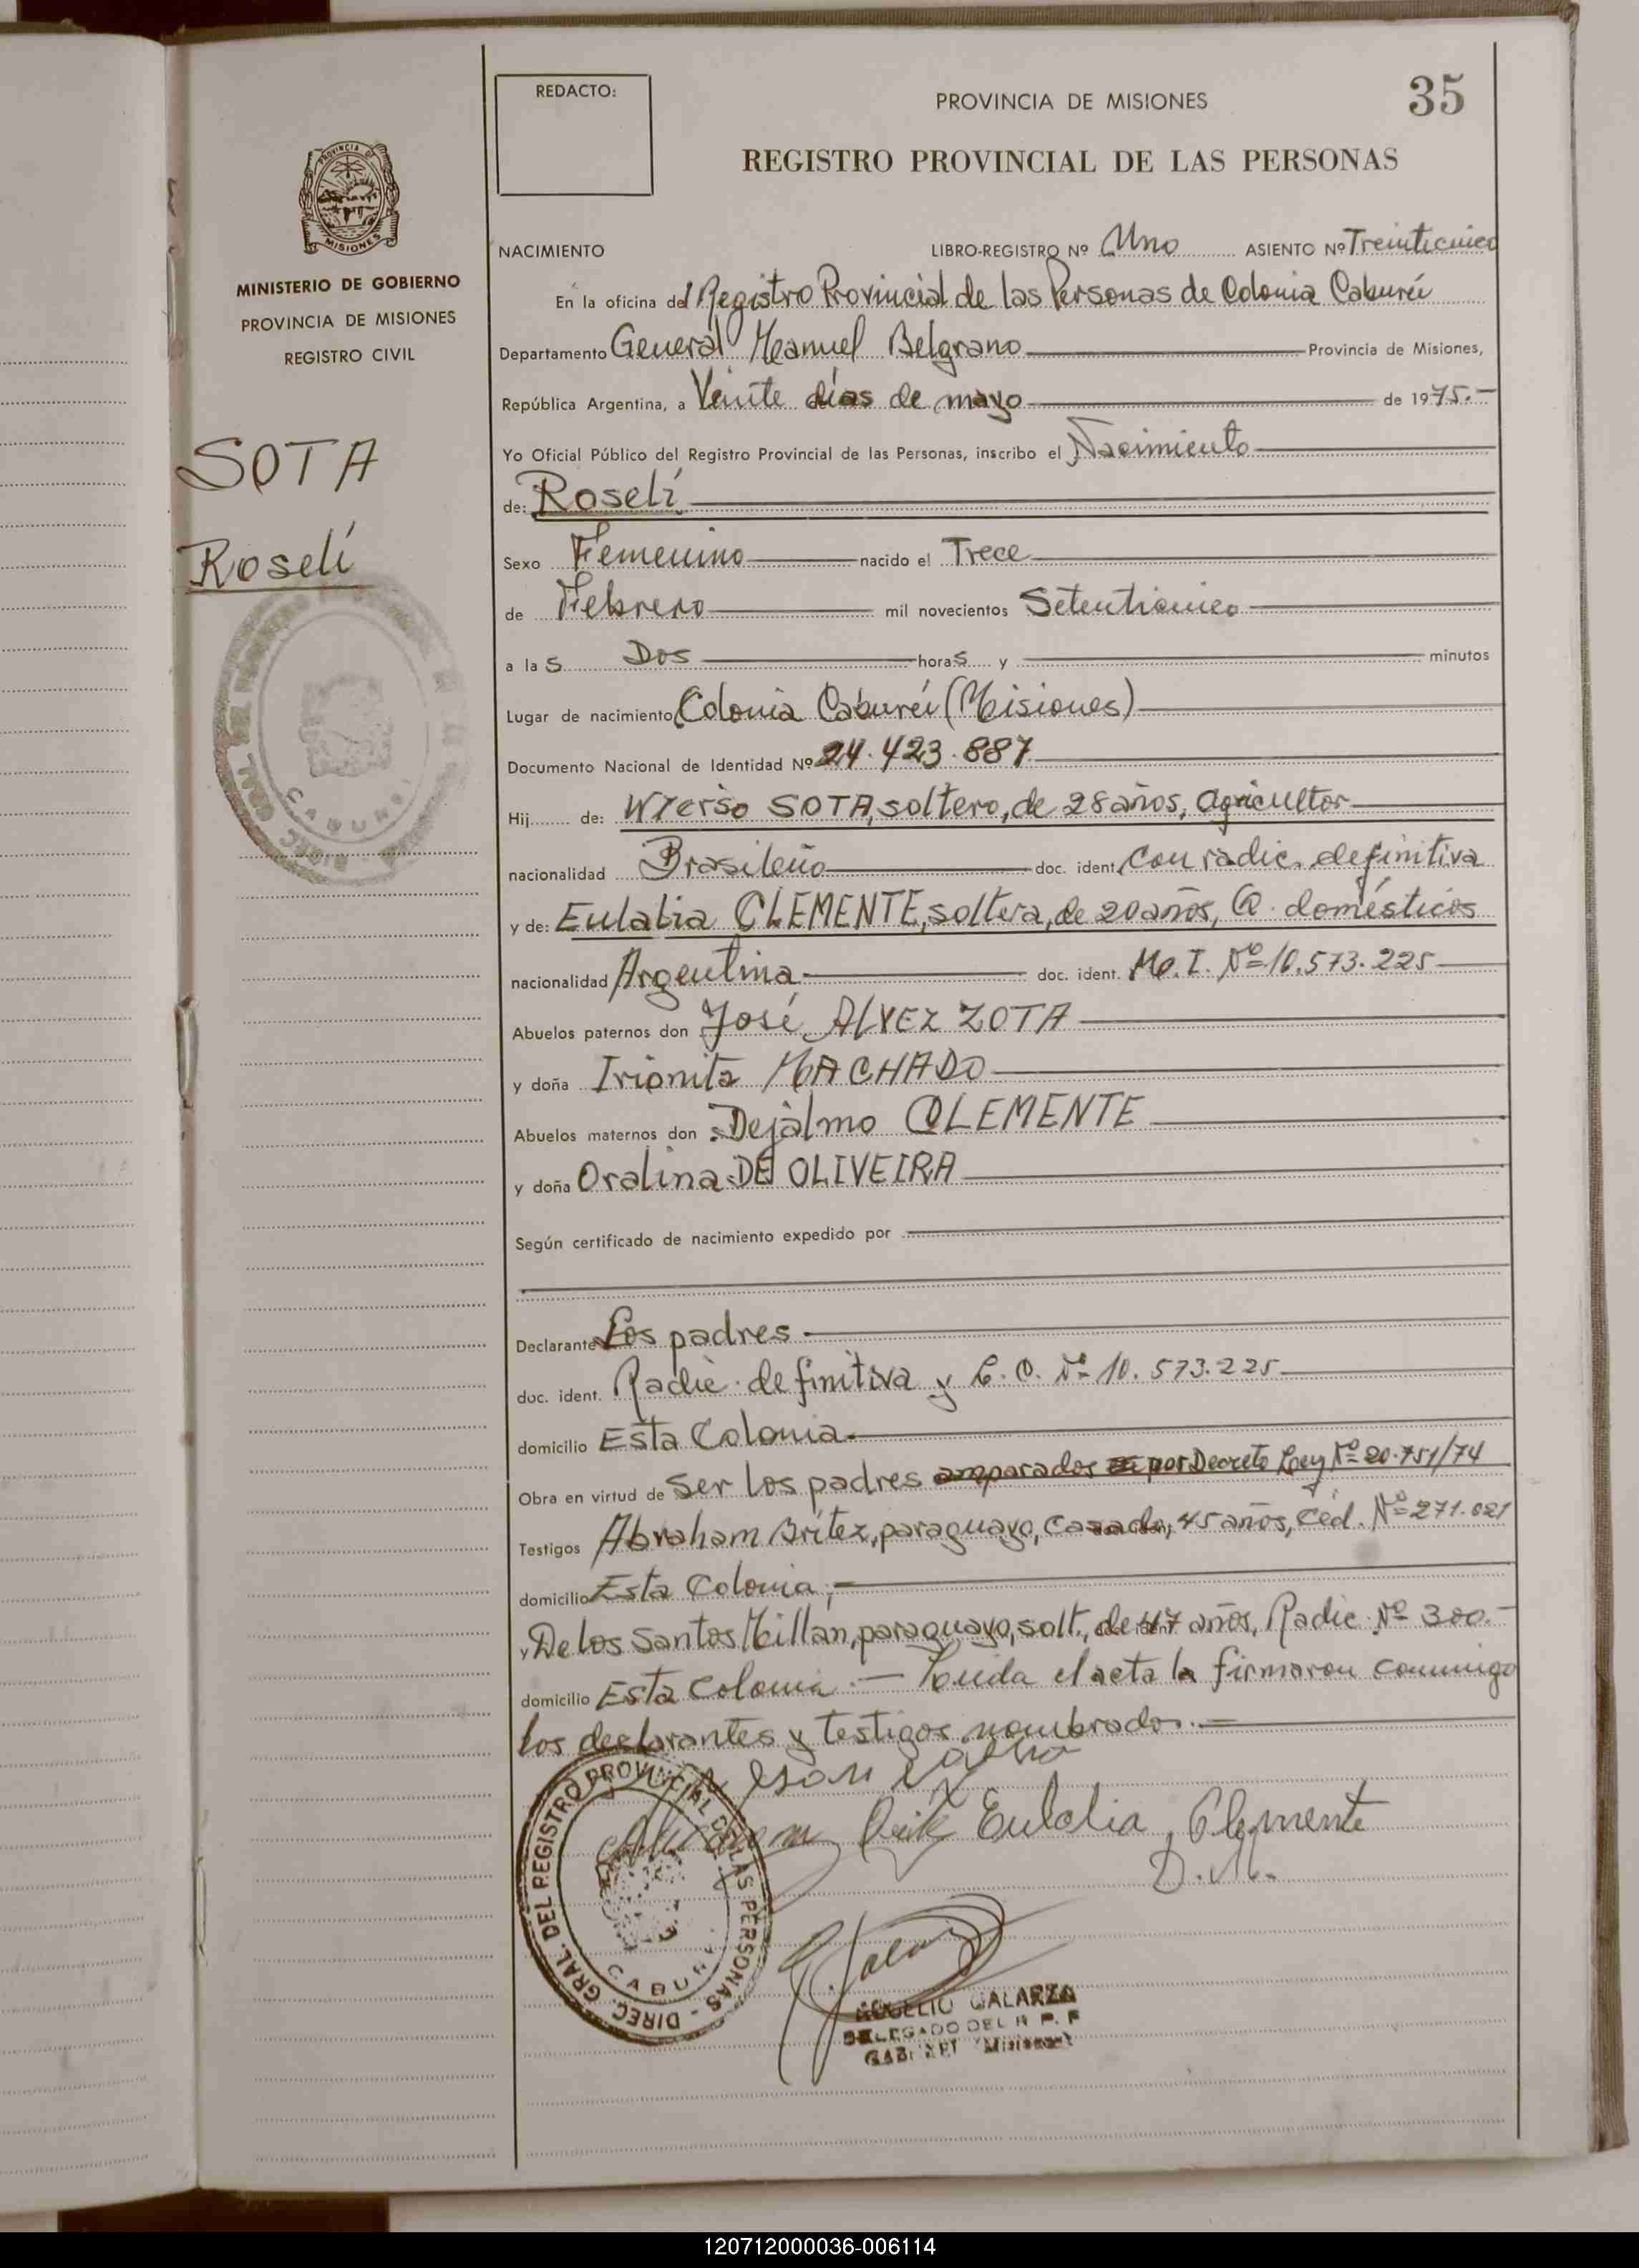 REDACTO:
PROVINCIA DE MISIONES
35
REGISTRO PROVINCIAL DE LAS PERSONAS
PROVINCIA DE
MISIONES
MINISTERIO DE GOBIERNO
PROVINCIA DE MISIONES
REGISTRO CIVIL
SOTA
Roselí
NACIMIENTO LIBRO-REGISTRO Nº Uno ASIENTO Nº Treinticinco
En la oficina del Registro Provincial de las Personas de Colonia Caburéi
Departamento General Manuel Belgrano Provincia de Misiones,
República Argentina, a Veinte días de mayo de 1975.-
Yo Oficial Público del Registro Provincial de las Personas, inscribo el Nacimiento
de: Roselí
Sexo Femenino nacido el Trece
de Febrero mil novecientos Setenticinco
a las Dos horas y minutos
Lugar de nacimiento Colonia Caburéi (Misiones)
Documento Nacional de Identidad Nº 24.423.887
Hij de: SOTA, soltero, de 28 años, agricultor
nacionalidad Brasileño doc. ident. con radic. definitiva
y de: Eulalia CLEMENTE, soltera, de 20 años, Q. domésticos
nacionalidad Argentina doc. ident. M.I. Nº 10.573.225
Abuelos paternos don José ALVEZ ZOTA
y doña Irionita MACHADO
Abuelos maternos don Dejalmo CLEMENTE
y doña Oralina DE OLIVEIRA
Según certificado de nacimiento expedido por
Declarante Los padres
doc. ident. Radic. definitiva y C.C. Nº 10.573.225
domicilio Esta Colonia
Obra en virtud de Ser los padres amparados por Decreto Ley Nº 20.751/74
Testigos Abraham Britez, paraguayo, casado, 45 años, Céd. Nº 271.021
domicilio Esta Colonia;
y De los Santos Millán, paraguayo, solt., de 47 años, Radic. Nº 300.-
domicilio Esta Colonia.- Leída el acta la firmaron conmigo
los declarantes y testigos nombrados.-
Eulalia Clemente
D. M.
DIREC. GRAL. DEL REGISTRO PROVINCIAL DE LAS PERSONAS -
ROGELIO GALARZA
DELEGADO DEL R. P. P
120712000036-006114